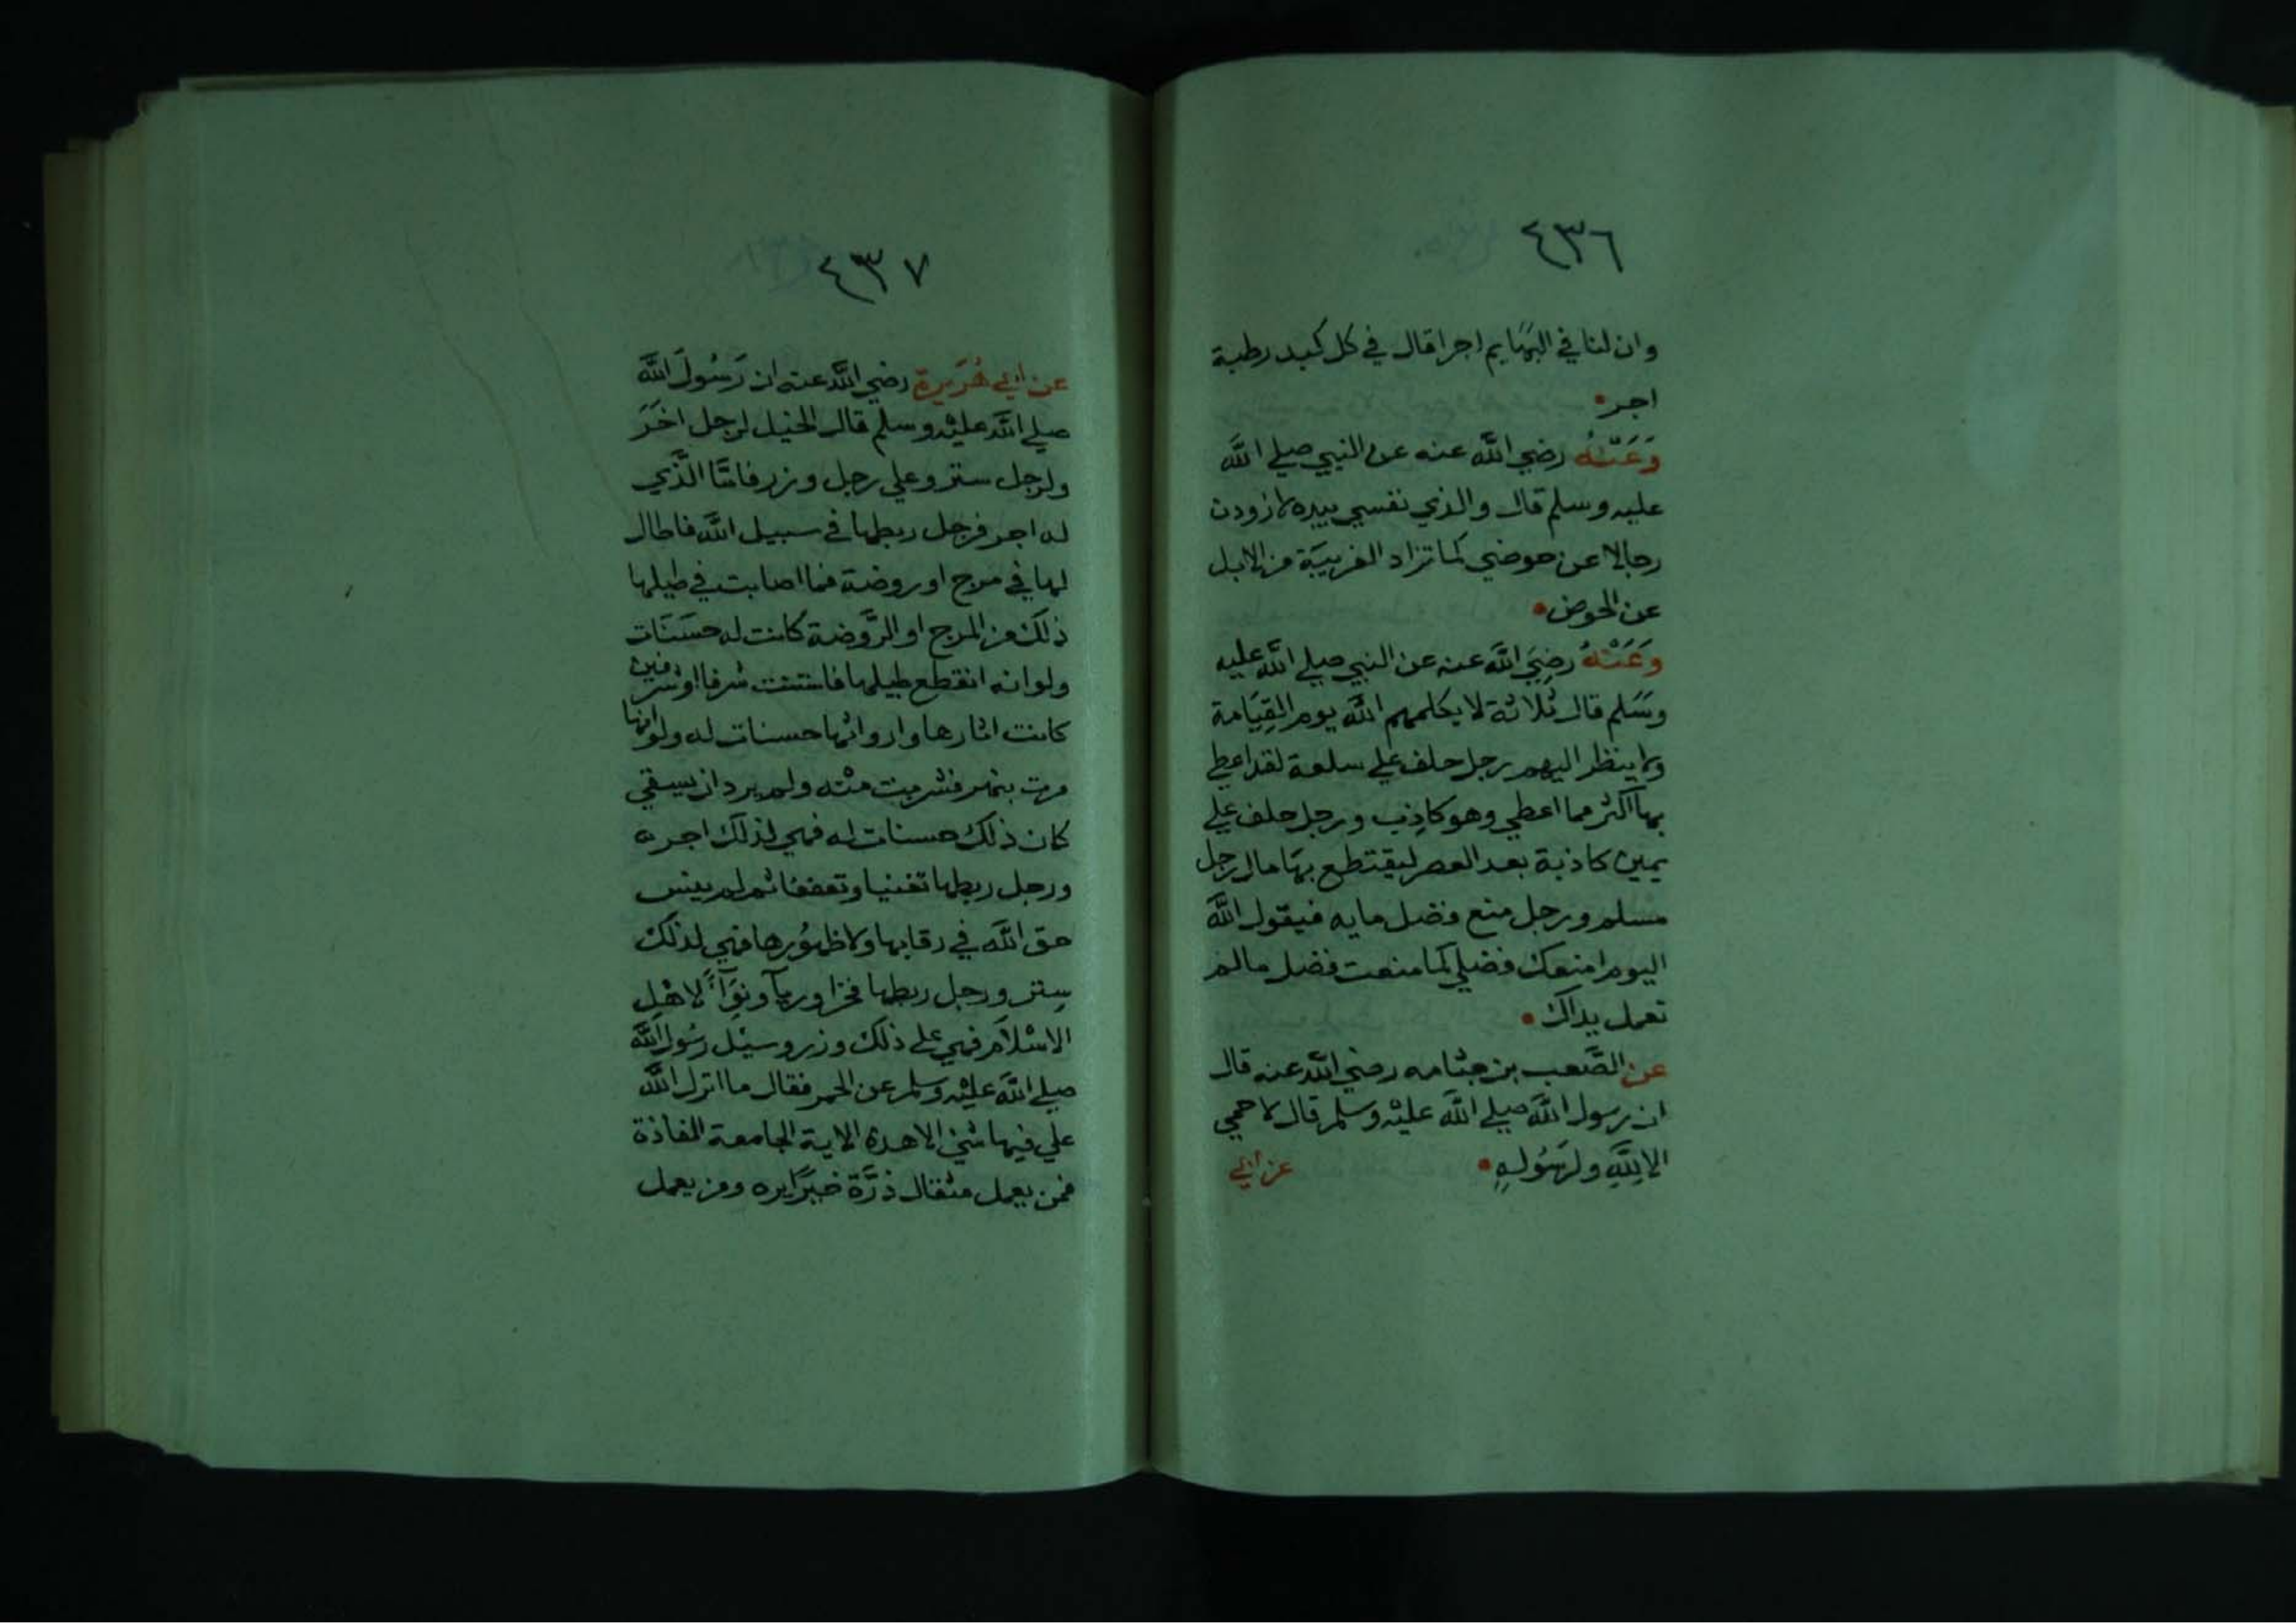 ٤٣٦
وان لنا في البهايم اجرا قال في كل كبد رطبة
اجر
وَعَنْهُ رضي الله عنه عن النبي صلي الله
عليه وسلم قال والذي نفسي بيده لاذودن
رجالا عن حوضي كما تزاد الغريبة من الابل
عن الحوض
وَعَنْهُ رضِيَ الله عنه عن النبي صلي الله عليه
وسَلم قال ثلاثة لا يكلمهم الله يوم القِيَامة
ولا ينظر اليهم رجل حلف علي سلعة لقد اعطي
بها اكثر مما اعطي وهو كاذب ورجل حلف علي
يمين كاذبة بعد العصر ليقتطع بها مال رجل
مسلم ورجل منع فضل مايه فيقول الله
اليوم امنعك فضلي كما منعت فضل ما لم
تعمل يداك
عن الصَّعب بن جثامه رضي الله عنه قال
ان رسول الله صلي الله عليه وسلم قال لا حمي
الا لِلَّهِ ولرسُولِهِ
عن ابي
٤٣٧
عن ابي هُرَيرة رضي الله عنه ان رَسُولَ الله
صلي الله عليه وسلم قال الخيل لرجل اخَرَ
ولرجل ستر وعلي رجل وزر فامَّا الَّذي
له اجر فرجل ربطها في سبيل الله فاطال
لها في مرج او روضة فما اصابت في طيلها
ذلك من المرج او الرَّوضة كانت له حسَنَات
ولو انه انقطع طيلها فاستنت شرفا او شرفين
كانت اثارها واروائها حسنات له ولو انها
مرت بنهر فشربت منه ولم يرد ان يسقي
كان ذلك حسنات له فهي لذلك اجره
ورجل ربطها تغنيا وتعففا ثم لم ينس
حق الله في رقابها ولا ظهُورها فهي لذلك
سِتر ورجل ربطها فخرا وريآ ونِوَآءً لاهْلِ
الاسْلاَم فهي علي ذلك وزر وسئل رسُول الله
صلي الله عليه وسلم عن الحمر فقال ما انزل الله
علي فيها شئ الا هذه الاية الجامعة الفاذة
فمن يعمل مثقال ذرَّة خيرًا يره ومن يعمل